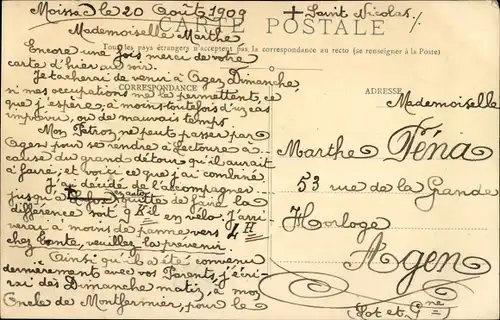 Moissac le 20 Août 1909
+ Saint Nicolas./.
CARTE POSTALE
Mademoiselle Marthe
Tous les pays étrangers n'acceptent pas la correspondance au recto (se renseigner à la Poste)
Encore une fois merci de votre
carte d'hier au soir.
Je tacherai de venir à Agen, Dimanche,
CORRESPONDANCE
si mes occupations me le permettent, ce
que j'espère; à moins toutefois d'un cas
imprévu, ou de mauvais temps.
Mon Patron ne peut passer par
Agen pour se rendre à Lectoure à
cause du grand détour qu'il aurait
à faire; et voici ce que j'ai combiné
J'ai décidé de l'accompagner
en auto
jusqu'à + quitte de faire la
différence soit 9 Kil en vélo. J'arri-
verai à moins de panne vers 4H
chez Tante, veuillez la prévenir.
Ainsi qu'il a été convenu
dernièrement avec vos Parents, j'écri-
rai dès Dimanche matin, à mon
Oncle de Montfermier, pour le
ADRESSE
Mademoiselle
Marthe Féna
53 rue de la Grande
Horloge
Agen
(Lot et Gne)